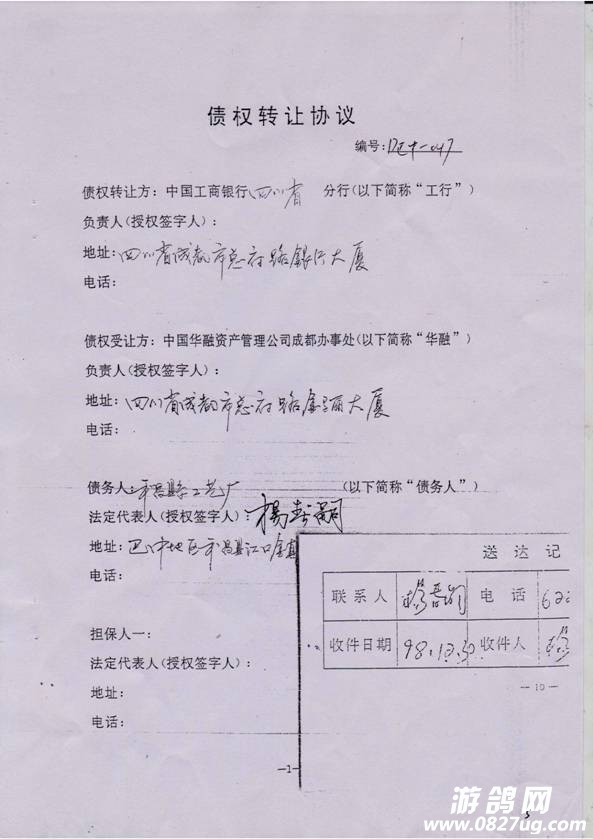 债权转让协议
编号:
债权转让方：中国工商银行四川省 分行(以下简称“工行”)
负责人(授权签字人)：
地址：四川省成都市总府路银行大厦
电话：
债权受让方：中国华融资产管理公司成都办事处(以下简称“华融”)
负责人(授权签字人)：
地址：四川省成都市总府路 大厦
电话：
债务人：平昌县工艺厂 (以下简称“债务人”)
法定代表人(授权签字人)：杨
地址：巴中地区平昌县江口
电话：
担保人一：
法定代表人(授权签字人)：
地址：
电话：
—1
送达记
联系人 杨 电话 622
收件日期 98.12.30 收件人 杨
—10—
5
游鸽网
www.0827ug.com